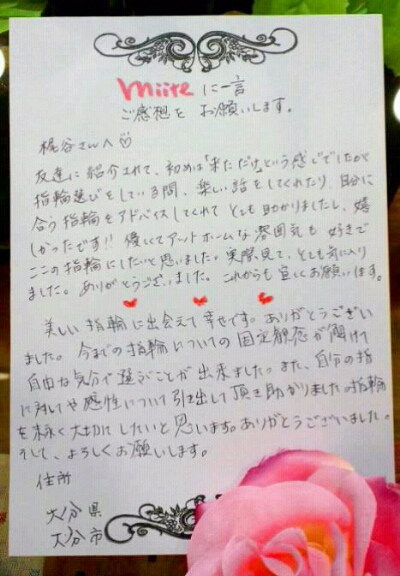 miite に一言
ご感想を お願いします。
梶谷さんへ♡
友達に紹介されて、初めは「来ただけ」という感じでしたが
指輪選びをしている間、楽しい話をしてくれたり、自分に
合う指輪をアドバイスしてくれて とても助かりましたし、嬉
しかったです!! 優しくてアットホームな雰囲気も 好きで
ここの指輪にしたいと思いました。実際見て、とても気に入り
ました。ありがとうございました。これからも宜しくお願いします。
美しい指輪に出会えて幸せです。ありがとうござい
ました。今までの指輪についての固定観念が解けて
自由な気分で選ぶことが出来ました。また、自分の指
に対してや感性について引き出して頂き助かりました。指輪
を末永く大切にしたいと思います。ありがとうございました。
そして、よろしくお願いします。
住所
大分県
大分市